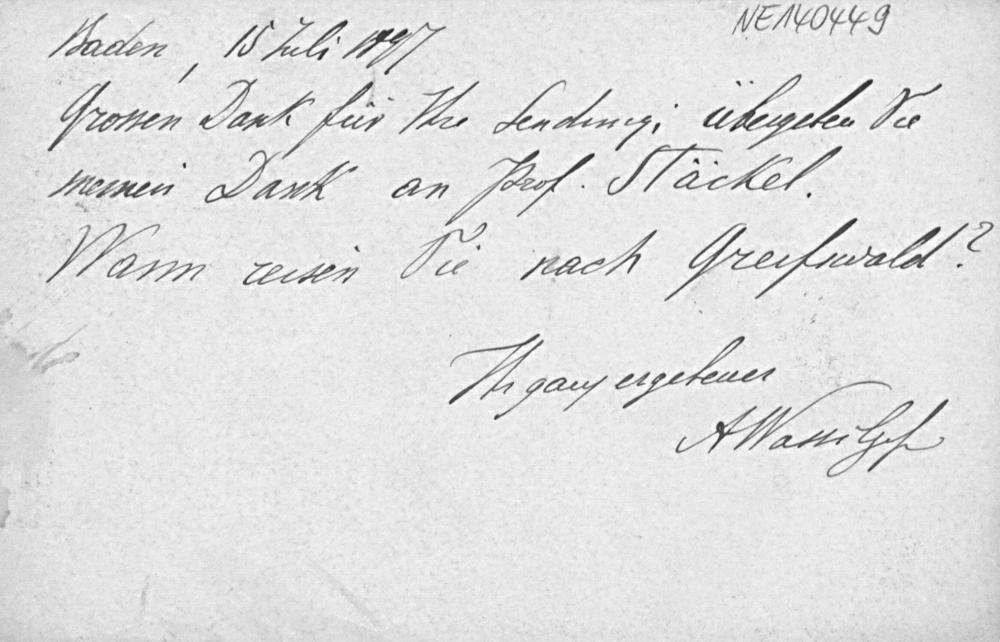 NE140449
Baden, 15 Juli 1897
Grossen Dank für Ihre Sendung; übergeben Sie
meinen Dank an Prof. Stäckel.
Wann reisen Sie nach Greifswald?
Ihr ganz ergebener
A Wassiljef